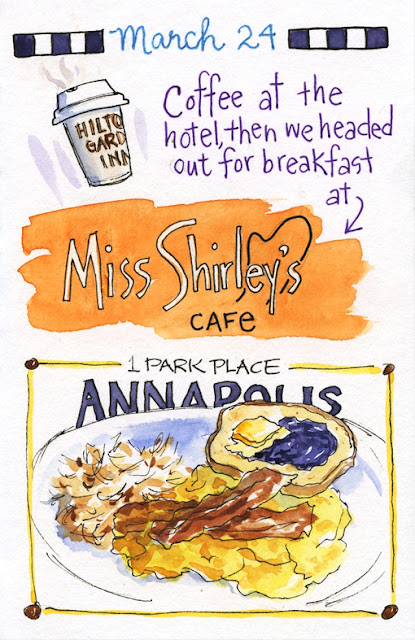 March 24
HILTO
GARD
INN
Coffee at the
hotel, then we headed
out for breakfast
at
Miss Shirley's
CAFE
1 PARK PLACE
ANNAPOLIS